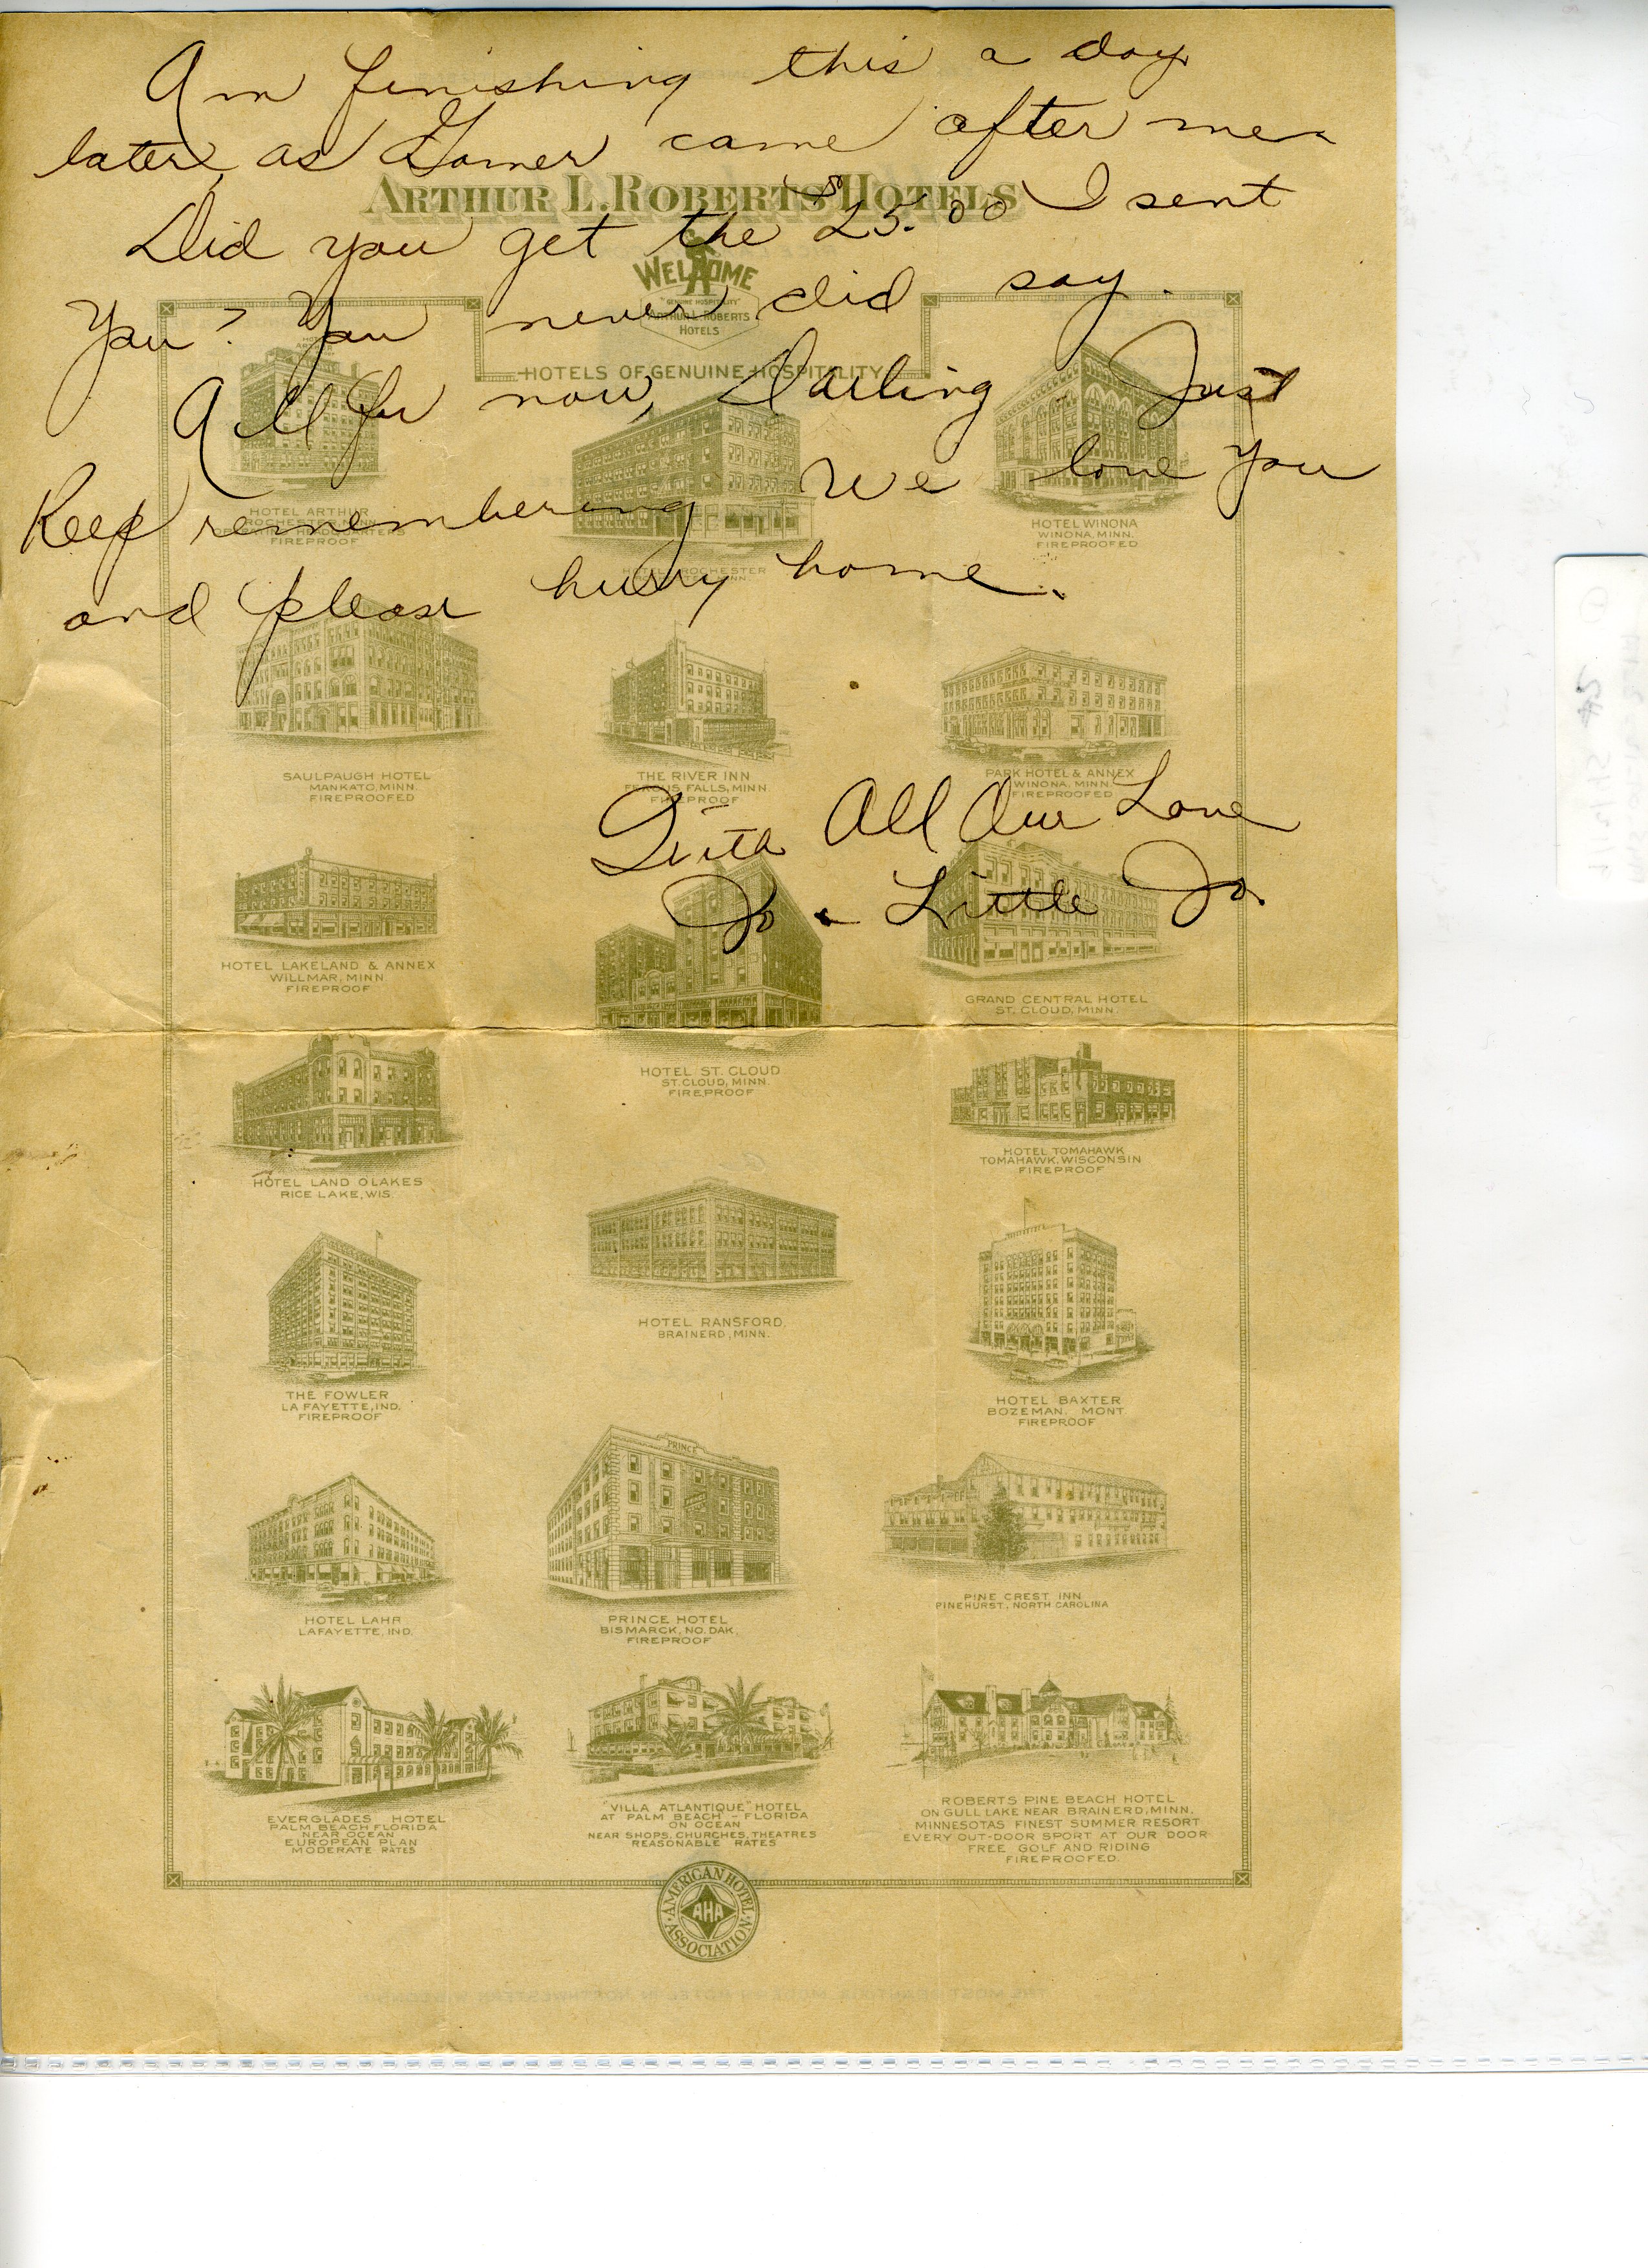 Am finishing this a day
later, as Gomer came after me.
ARTHUR L. ROBERTS HOTELS
Did you get the $25.00 I sent
WELCOME
"GENUINE HOSPITALITY"
ARTHUR L. ROBERTS
HOTELS
you? You never did say.
HOTELS OF GENUINE HOSPITALITY
All for now, Darling. Just
Keep remembering we love you
HOTEL ARTHUR
ROCHESTER, MINN.
OPERATING HEADQUARTERS
FIREPROOF
HOTEL ROCHESTER
HOTEL WINONA
WINONA, MINN.
FIREPROOFED
and please hurry home.
SAULPAUGH HOTEL
MANKATO, MINN.
FIREPROOFED
THE RIVER INN
FERGUS FALLS, MINN.
FIREPROOF
PARK HOTEL & ANNEX
WINONA, MINN.
FIREPROOFED
With All Our Love
Jo & Little Jo.
HOTEL LAKELAND & ANNEX
WILLMAR, MINN
FIREPROOF
HOTEL ST. CLOUD
ST. CLOUD, MINN.
FIREPROOF
GRAND CENTRAL HOTEL
ST. CLOUD, MINN.
HOTEL LAND O'LAKES
RICE LAKE, WIS.
HOTEL TOMAHAWK
TOMAHAWK, WISCONSIN
FIREPROOF
THE FOWLER
LA FAYETTE, IND.
FIREPROOF
HOTEL RANSFORD,
BRAINERD, MINN.
HOTEL BAXTER
BOZEMAN, MONT.
FIREPROOF
HOTEL LAHR
LAFAYETTE, IND.
PRINCE
PRINCE HOTEL
BISMARCK, NO. DAK.
FIREPROOF
PINE CREST INN
PINEHURST, NORTH CAROLINA
EVERGLADES HOTEL
PALM BEACH FLORIDA
NEAR OCEAN
EUROPEAN PLAN
MODERATE RATES
"VILLA ATLANTIQUE" HOTEL
AT PALM BEACH - FLORIDA
ON OCEAN
NEAR SHOPS, CHURCHES, THEATRES
REASONABLE RATES
ROBERTS PINE BEACH HOTEL
ON GULL LAKE NEAR BRAINERD, MINN.
MINNESOTAS FINEST SUMMER RESORT
EVERY OUT-DOOR SPORT AT OUR DOOR
FREE GOLF AND RIDING
FIREPROOFED.
AMERICAN HOTEL
AHA
ASSOCIATION